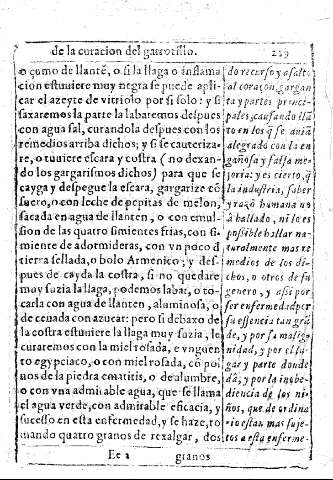 de la curacion del garrotillo. 219
o çumo de llantẽ, o si la llaga o inflama
cion estuuiere muy negra se puede apli-
car el azeyte de vitriolo por si solo: y si
saxaremos la parte la labaremos despues
con agua sal, curandola despues con los
remedios arriba dichos; y si se cauteriza-
re, o tuuiere escara y costra (no dexan-
do los gargarismos dichos) para que se
cayga y despegue la escara, gargarize cõ
suero, o con leche de pepitas de melon,
sacada en agua de llanten, o con emul-
sion de las quatro simientes frias, con si-
miente de adormideras, con vn poco d
tierra sellada, o bolo Armenico; y des-
pues de cayda la costra, si no quedare
muy suzia la llaga, podemos labar, o to-
carla con agua de llanten, aluminosa, o
de ceuada con azucar: pero si debaxo de
la costra estuuiere la llaga muy suzia, le
curaremos con la miel rosada, e vnguen
to egypciaco, o con miel rosada, cõ pol
uos de la piedra ematitis, o de alumbre,
o con vna admirable agua, que se llama
el agua verde, con admirable eficacia, y
sucesso en esta enfermedad, y se haze, to
mando quatro granos de rexalgar, dos
Ee 2 granos
do recurso y asalto
al coraçon, gargan
ta y partes princi-
pales, causando llã
to en los q̃ se auiã
alegrado con la en
gañosa y falsa me-
joria: y es cierto, q̃
la industria, saber
y razõ humana no
à hallado, ni lo es
possible hallar na-
turalmente mas re
medios de los di-
chos, o otros de su
genero, y assi por
ser enfermedad per
su essencia tan grã
de, y por su malig-
nidad, y por el lu-
gar y parte donde
dà, y por la inobe-
diencia de los ni-
ños, que de ordina
rio estan mas suje-
tos a esta enferme-